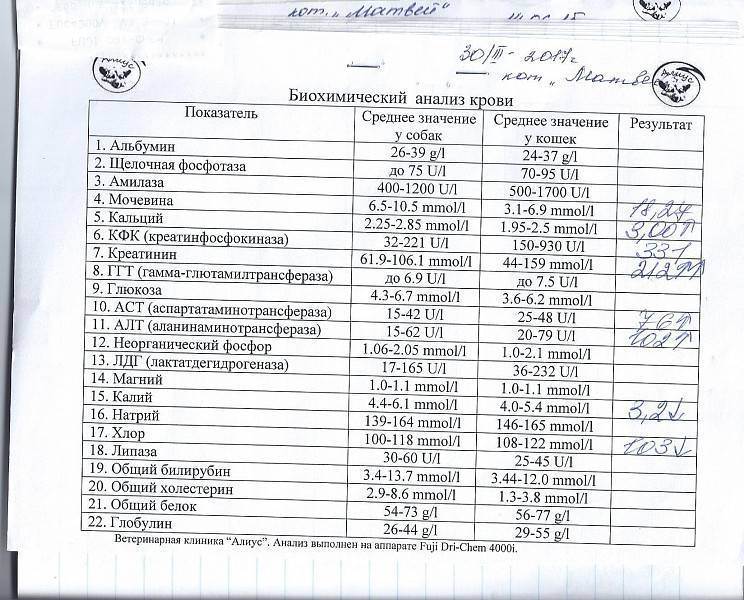 кот. „Матвей"
30/III - 2017г
кот „Матвей
Алиус
Биохимический анализ крови
Показатель Среднее значение у собак Среднее значение у кошек Результат
1. Альбумин 26-39 g/l 24-37 g/l
2. Щелочная фосфотаза до 75 U/l 70-95 U/l
3. Амилаза 400-1200 U/l 500-1700 U/l
4. Мочевина 6.5-10.5 mmol/l 3.1-6.9 mmol/l 18,2↑
5. Кальций 2.25-2.85 mmol/l 1.95-2.5 mmol/l 3,00↑
6. КФК (креатинфосфокиназа) 32-221 U/l 150-930 U/l 331
7. Креатинин 61.9-106.1 mmol/l 44-159 mmol/l 212↑↑
8. ГГТ (гамма-глютамилтрансфераза) до 6.9 U/l до 7.5 U/l
9. Глюкоза 4.3-6.7 mmol/l 3.6-6.2 mmol/l
10. АСТ (аспартатаминотрансфераза) 15-42 U/l 25-48 U/l 76↑
11. АЛТ (аланинаминотрансфераза) 15-62 U/l 20-79 U/l 102↑
12. Неорганический фосфор 1.06-2.05 mmol/l 1.0-2.1 mmol/l
13. ЛДГ (лактатдегидрогеназа) 17-165 U/l 36-232 U/l
14. Магний 1.0-1.1 mmol/l 1.0-1.1 mmol/l
15. Калий 4.4-6.1 mmol/l 4.0-5.4 mmol/l 3,2↓
16. Натрий 139-164 mmol/l 146-165 mmol/l
17. Хлор 100-118 mmol/l 108-122 mmol/l 103↓
18. Липаза 30-60 U/l 25-45 U/l
19. Общий билирубин 3.4-13.7 mmol/l 3.44-12.0 mmol/l
20. Общий холестерин 2.9-8.6 mmol/l 1.3-3.8 mmol/l
21. Общий белок 54-73 g/l 56-77 g/l
22. Глобулин 26-44 g/l 29-55 g/l
Ветеринарная клиника “Алиус”. Анализ выполнен на аппарате Fuji Dri-Chem 4000i.